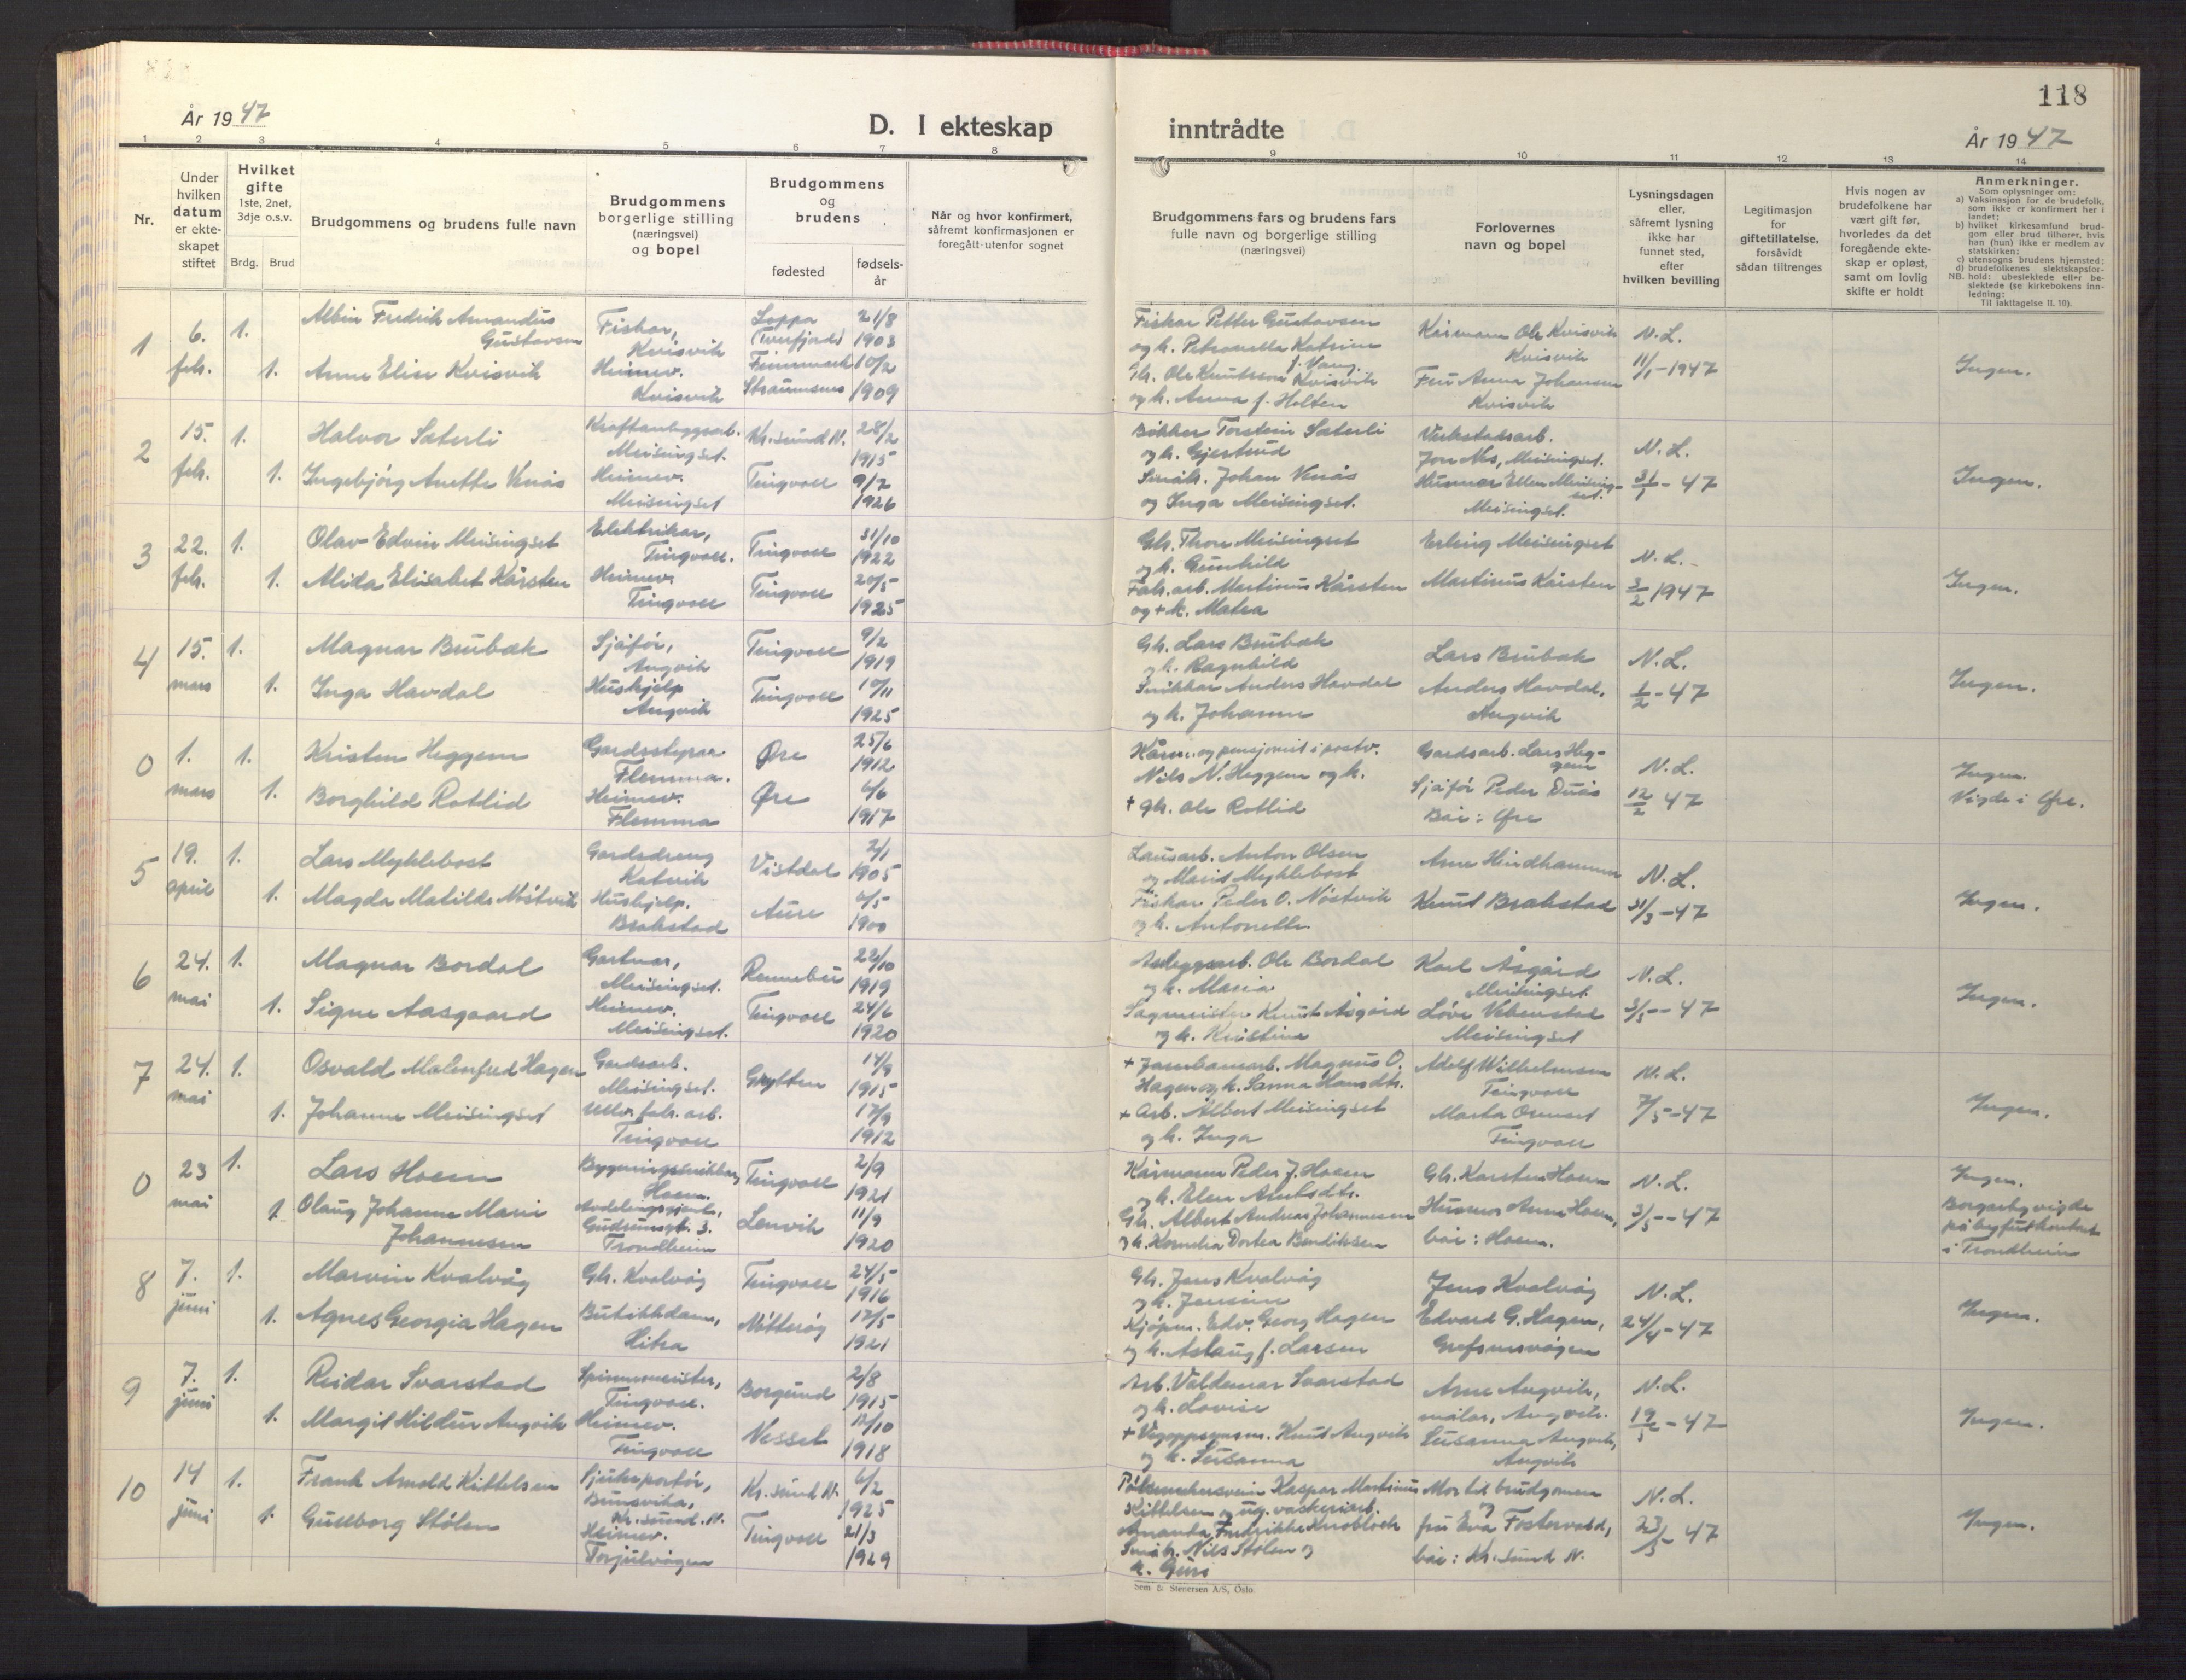 118
År 1947
D. I ekteskap
inntrådte
År 1947
1 2 3 4 5 6 7 8 9 10 11 12 13 14
Nr.
Under
hvilken
datum
er ekte-
skapet
stiftet
Hvilket
gifte
1ste, 2net,
3dje o.s.v.
Brdg. Brud
Brudgommens og brudens fulle navn
Brudgommens
borgerlige stilling
(næringsvei)
og bopel
Brudgommens
og
brudens
fødested
fødsels-
år
Når og hvor konfirmert,
såfremt konfirmasjonen er
foregått utenfor sognet
Brudgommens fars og brudens fars
fulle navn og borgerlige stilling
(næringsvei)
Forlovernes
navn og bopel
Lysningsdagen
eller,
såfremt lysning
ikke har
funnet sted,
efter
hvilken bevilling
Legitimasjon
for
giftetillatelse,
forsåvidt
sådan tiltrenges
Hvis nogen av
brudefolkene har
vært gift før,
hvorledes da det
foregående ekte-
skap er opløst,
samt om lovlig
skifte er holdt
Anmerkninger.
Som oplysninger om:
a) Vaksinasjon for de brudefolk,
som ikke er konfirmert her i
landet;
b) hvilket kirkesamfund brud-
gom eller brud tilhører, hvis
han (hun) ikke er medlem av
statskirken;
c) utensogns brudens hjemsted;
d) brudefolkenes slektskapsfor-
NB. hold: ubeslektede eller be-
slektede (se kirkebokens inn-
ledning:
Til iakttagelse II. 10).
1 6. feb. 1. Albin Fredrik Amandus
Gustavsen
Fiskar,
Kvisvik
Loppa
Finnmark
21/8
1903
Fiskar Petter Gustavsen
og k. Petronella Katrine
f. Vang.
Kårmann Ole Kvisvik
Kvisvik
N.L.
11/1-1947
Ingen.
1. Anne Elise Kvisvik
Heimev.
Kvisvik
Straumsnes
10/2
1909
Gb. Ole Knutsson Kvisvik
og k. Anna f. Holten
Fru Anna Johansen
Kvisvik
2 15. feb. 1. Halvor Sæterli
Kraftanleggsarb.
Meisingset.
Kr.sund N.
28/2
1915
Bøkker Torstein Sæterli
og k. Gjertrud
Verkstadsarb.
Jon Nes, Meisingset.
N.L.
31/1-47
Ingen.
1. Ingebjørg Anette Venås
Heimev.
Meisingset
Tingvoll
9/7
1926
Småbr. Johan Venås
og Inga Meisingset.
Husmor Ellen Meising-
set.
Meisingset.
3 22. feb. 1. Olav Edvin Meisingset
Elektrikar,
Tingvoll.
Tingvoll
31/10
1922
Gb. Thore Meisingset
og k. Gunhild
Erling Meisingset
N.L.
3/2 1947
Ingen.
1. Alida Elisabet Kårsten
Heimev.
Tingvoll
Tingvoll
20/5
1925
Fab.arb. Martinus Kårsten
og + k. Matea
Martinus Kårsten
4 15. mars 1. Magnar Brubæk
Sjåfør,
Angvik
Tingvoll
9/2
1919
Gb. Lars Brubæk
og k. Ragnhild
Lars Brubæk
N.L.
1/2-47
Ingen.
1. Inga Havdal
Hushjelp
Angvik
Tingvoll
10/11
1925
Snikkar Anders Havdal
og k. Johanne
Anders Havdal,
Angvik
0 1. mars 1. Kristen Heggem
Gardsstyrar
Flemma.
Øre
25/6
1912
Kårm. og pensjonist i postv.
Nils N. Heggem og k.
Gardsarb. Lars Heg-
gem
N.L.
12/2 47
Ingen.
Vigde i Øre.
1. Borghild Rotlid
Heimev.
Flemma
Øre
6/6
1917
+ gb. Ole Rotlid
Sjåfør Peder Duås
Båe: Øre
5 19. april 1. Lars Myklebost
Gardsdreng
Kat­vik
Vistdal
2/1
1905
Lausarb. Anton Olsen
og Marit Myklebost
Arne Heindhammer
N.L.
31/3-47
Ingen.
1. Magda Matilde Nöstvik
Hushjelp.
Brakstad
Aure
4/5
1900
Fiskar Peder O. Nöstvik
og k. Antonette.
Knut Brakstad
6 24. mai 1. Magnar Bordal
Gartner,
Meisingset.
Rennebu
22/10
1919
Anleggsarb. Ole Bordal
og k. Maria
Karl Åsgård
Meisingset
N.L.
3/5-47
Ingen.
1. Signe Aasgaard
Heimev.
Meisingset.
Tingvoll
24/6
1920
Sagmeister Knut Åsgård
og k. Kristine
Meisingset
7 24. mai 1. Osvald Malenfred Hagen
Gardsarb.
Meisingset.
Grytten
14/9
1915
+ Jernbanearb. Magnus O.
Hagen og k. Sanna Hansdtr.
Adolf Wilhelmsen
Tingvoll
N.L.
7/5-47
Ingen.
1. Johanne Meisingset
Ullv. fab. arb.
Tingvoll
17/9
1912
+ Arb. Albert Meisingset
og k. Inga
Marta
Tingvoll
0 23 mai 1. Lars Hoem
Bygningssnikkar,
Hoem.
Tingvoll
2/9
1921
Kårmann Peder J. Hoem
og k. Elen
Gb. Karsten Hoem
N.L.
3/5-47
Ingen.
Borgarleg vigde
på byfutkontoret
i Trondheim
1. Olaug Johanne Marie
Johannesen
Gudrunsgt. 3.
Trondheim
Lenvik
11/9
1920
Gb. Albert Andreas Johannesen
og k. Kornelia Dortea Bendiksen
Husmor Anna Hoem,
båe: Hoem.
8 7. juni 1. Marvin Kvalvåg
Gb. Kvalvåg
Tingvoll
24/5
1916
Gb. Jens Kvalvåg
og k. Jensine
Jens Kvalvåg
N.L.
24/4-47
Ingen.
1. Agnes Georgia Hagen
Butikkdame,
Hitra
Nötteröy
17/5
1921
Kjöpm. Edv. Georg Hagen
og k. Aslaug f. Larsen
Edvard G. Hagen,
Grefsnesvågen
9 7. juni 1. Reidar Svarstad
Spinnemeister,
Tingvoll.
Borgund
2/8
1915
Arb. Valdemar Svarstad
og k. Lovise
Arne Angvik,
målar, Angvik.
N.L.
19/5-47
Ingen.
1. Margit Hildur Angvik
Heimev.
Tingvoll
Nesset
12/10
1918
+ Vegoppsynsm. Knut Angvik
og k. Susanna
Susanna Angvik,
Angvik
10 14 juni 1. Frank Arnold Kittelsen
Sjukeportör,
Kr.sund. N.
Kr.sund N.
6/2
1925
Pölsemakersvein Kaspar Martinus
Kittelsen og ug. vaskeriarb.
Amanda Fredrikke Knobloch
Mor til brudgomen
og
N.L.
23/5-47
Ingen.
1. Gullborg Stölen
Heimev.
Torjulvågen
Tingvoll
21/3
1929
Småbr. Nils Stölen og
k. Guro
fru Eva Fostervold,
båe: Kr.sund N.
Sem & Stenersen A/S, Oslo